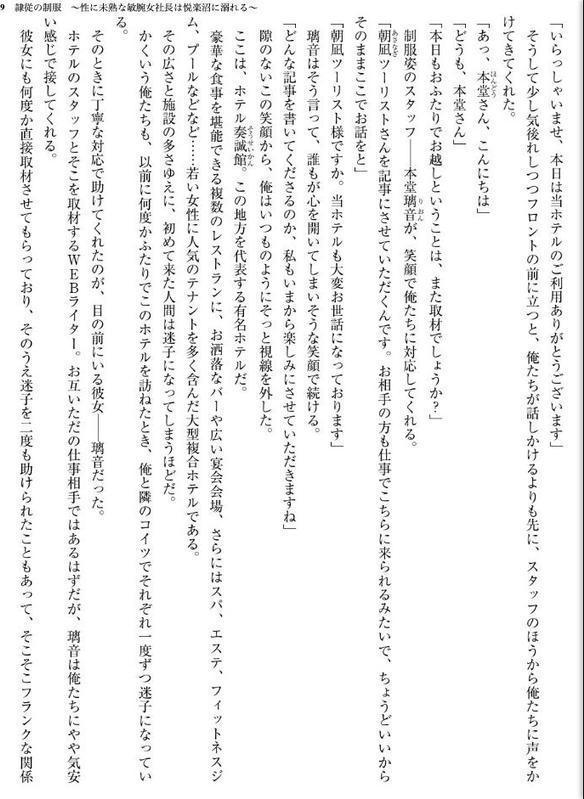 9　隷従の制服　〜性に未熟な敏腕女社長は悦楽沼に溺れる〜
「いらっしゃいませ、本日は当ホテルのご利用ありがとうございます」
そうして少し気後れしつつフロントの前に立つと、俺たちが話しかけるよりも先に、スタッフのほうから俺たちに声をか
けてきてくれた。
「あっ、本堂さん、こんにちは」
「どうも、本堂さん」
「本日もおふたりでお越しということは、また取材でしょうか？」
制服姿のスタッフ――本堂璃音が、笑顔で俺たちに対応してくれる。
「朝凪ツーリストさんを記事にさせていただくんです。お相手の方も仕事でこちらに来られるみたいで、ちょうどいいから
そのままここでお話をと」
「朝凪ツーリスト様ですか。当ホテルも大変お世話になっております」
璃音はそう言って、誰もが心を開いてしまいそうな笑顔で続ける。
「どんな記事を書いてくださるのか、私もいまから楽しみにさせていただきますね」
隙のないこの笑顔から、俺はいつものようにそっと視線を外した。
ここは、ホテル奏誠館。この地方を代表する有名ホテルだ。
豪華な食事を堪能できる複数のレストランに、お洒落なバーや広い宴会会場、さらにはスパ、エステ、フィットネスジ
ム、プールなどなど……若い女性に人気のテナントを多く含んだ大型複合ホテルである。
その広さと施設の多さゆえに、初めて来た人間は迷子になってしまうほどだ。
かくいう俺たちも、以前に何度かふたりでこのホテルを訪ねたとき、俺と隣のコイツでそれぞれ一度ずつ迷子になってい
る。
そのときに丁寧な対応で助けてくれたのが、目の前にいる彼女――璃音だった。
ホテルのスタッフとそこを取材するＷＥＢライター。お互いただの仕事相手ではあるはずだが、璃音は俺たちにやや気安
い感じで接してくれる。
彼女にも何度か直接取材させてもらっており、そのうえ迷子を二度も助けられたこともあって、そこそこフランクな関係